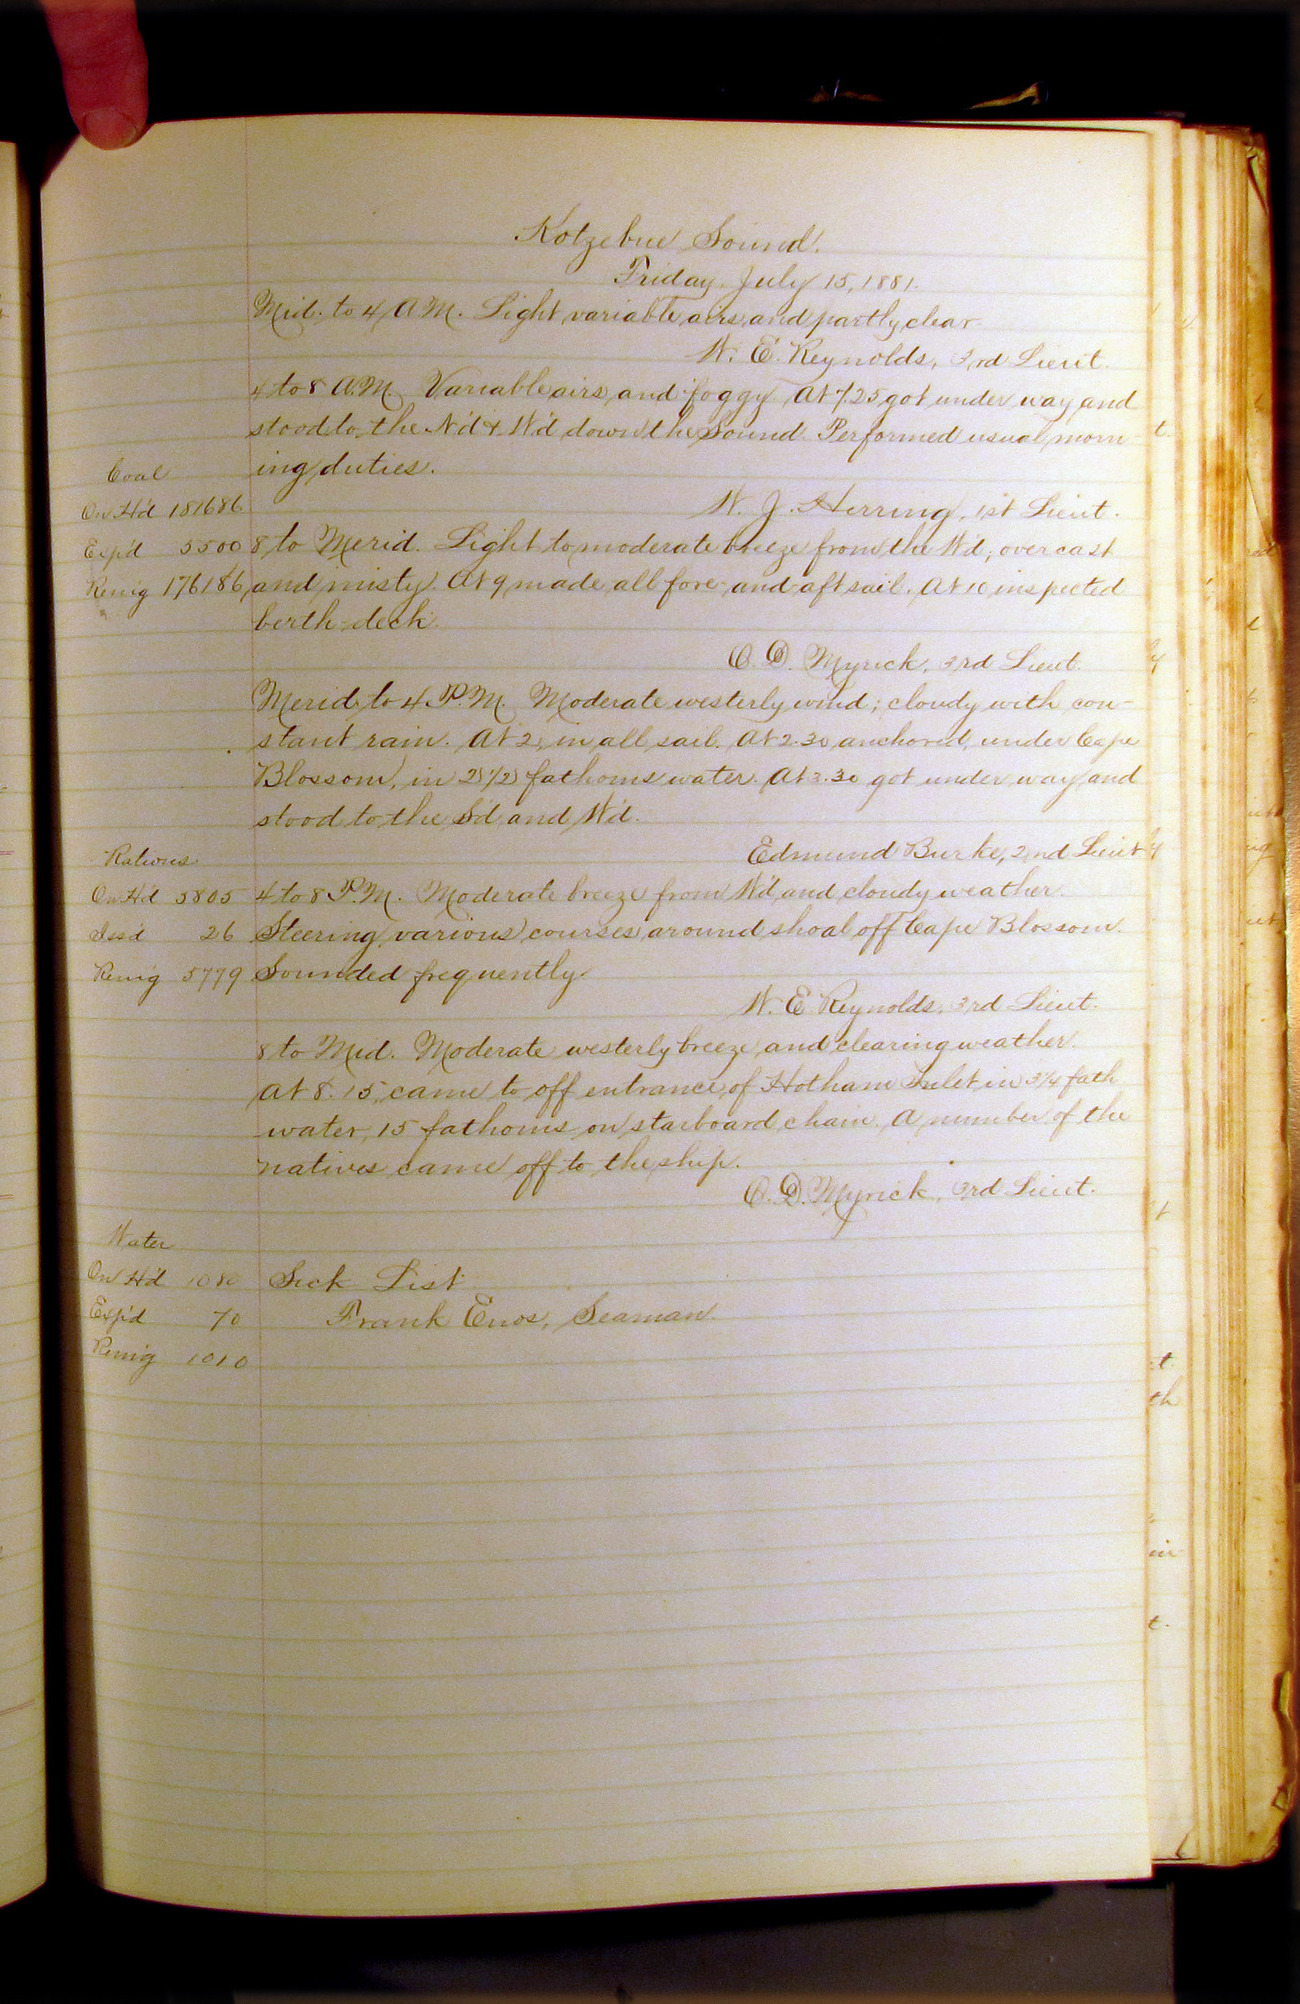 Kotzebue Sound.
Friday, July 15, 1881.
Mid. to 4 A.M. Light variable airs and partly clear.
W. E. Reynolds, 3rd Lieut.
4 to 8 A.M. Variable airs and foggy. At 7.25 got under way and
stood to the N'd & W'd down the Sound. Performed usual morn-
ing duties.
W. J. Herring, 1st Lieut.
Coal
On H'd 181686
Exp'd 5500
Rem'g 176186
8 to Merid. Light to moderate breeze from the W'd; overcast
and misty. At 9 made all fore-and-aft sail. At 10 inspected
berth-deck.
O. D. Myrick, 3rd Lieut.
Merid. to 4 P.M. Moderate westerly wind; cloudy with con-
stant rain. At 2, in all sail. At 2.30 anchored under Cape
Blossom, in 2 1/2 fathoms water. At 3.30 got under way and
stood to the S'd and W'd.
Edmund Burke, 2nd Lieut
Rations
On H'd 5805
Iss'd 26
Rem'g 5779
4 to 8 P.M. Moderate breeze from W'd and cloudy weather.
Steering various courses around shoal off Cape Blossom.
Sounded frequently
W. E. Reynolds, 3rd Lieut.
8 to Mid. Moderate westerly breeze and clearing weather.
At 8.15, came to off entrance of Hotham Inlet in 3 1/4 fath
water, 15 fathoms on starboard chain. A number of the
natives came off to the ship.
O. D. Myrick, 3rd Lieut.
Water
On H'd 1080
Exp'd 70
Rem'g 1010
Sick List
Frank Enos, Seaman.